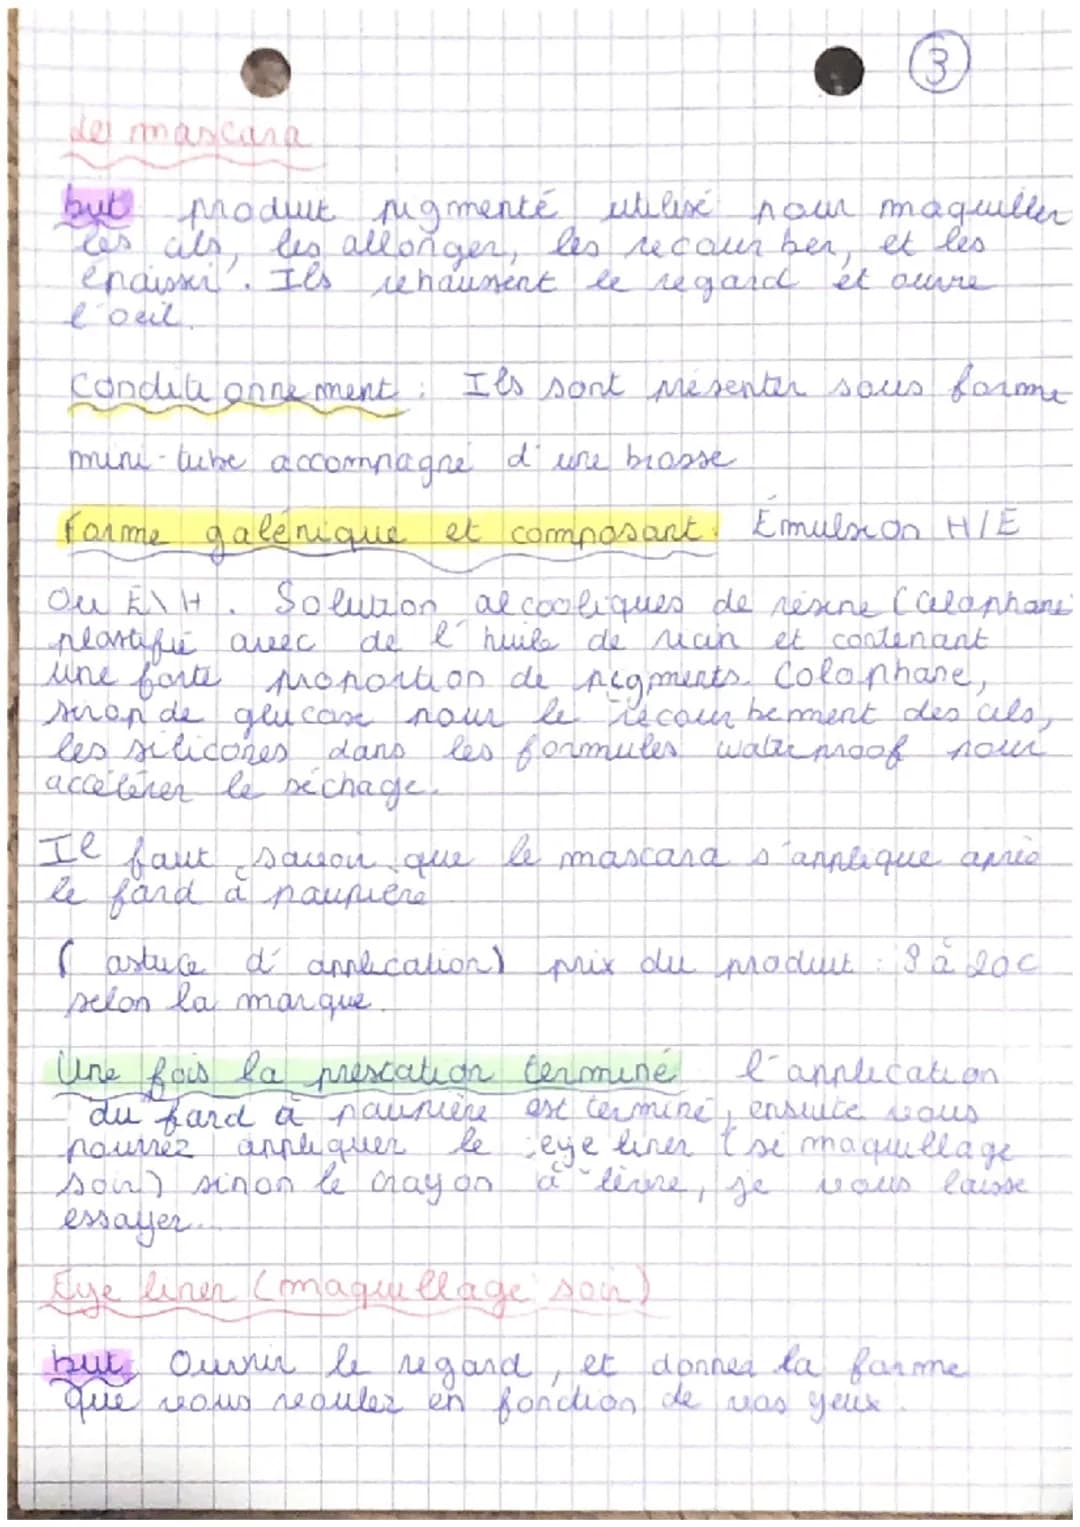 3
les mascara
but produit pigmenté utilisé pour maquiller
les cils, les allonger, les recourber, et les
épaissir. Ils rehaussent le regard et ouvre
l'oeil.
Conditionnement : Ils sont présenter sous forme
mini-tube accompagné d'une brosse
Forme galénique et composant. Émulsion H/E
Ou E\H. Solution alcooliques de résine (colophane
plastifié avec de l'huile de ricin et contenant
une forte proportion de pigments. Colophane,
sirop de glucose pour le recourbement des cils,
les silicones dans les formules waterproof pour
accélérer le séchage.
Il faut savoir que le mascara s'applique après
le fard à paupière
( astuce d'application) prix du produit : 8 à 20€
selon la marque.
Une fois la prescation terminé l'application
du fard à paupière est terminé, ensuite vous
pourrez appliquer le eye liner (si maquillage
soir) sinon le crayon à lèvre, je vous laisse
essayer...
Eye liner (maquillage soir)
but Ouvrir le regard, et donner la forme
que vous voulez en fonction de vos yeux.